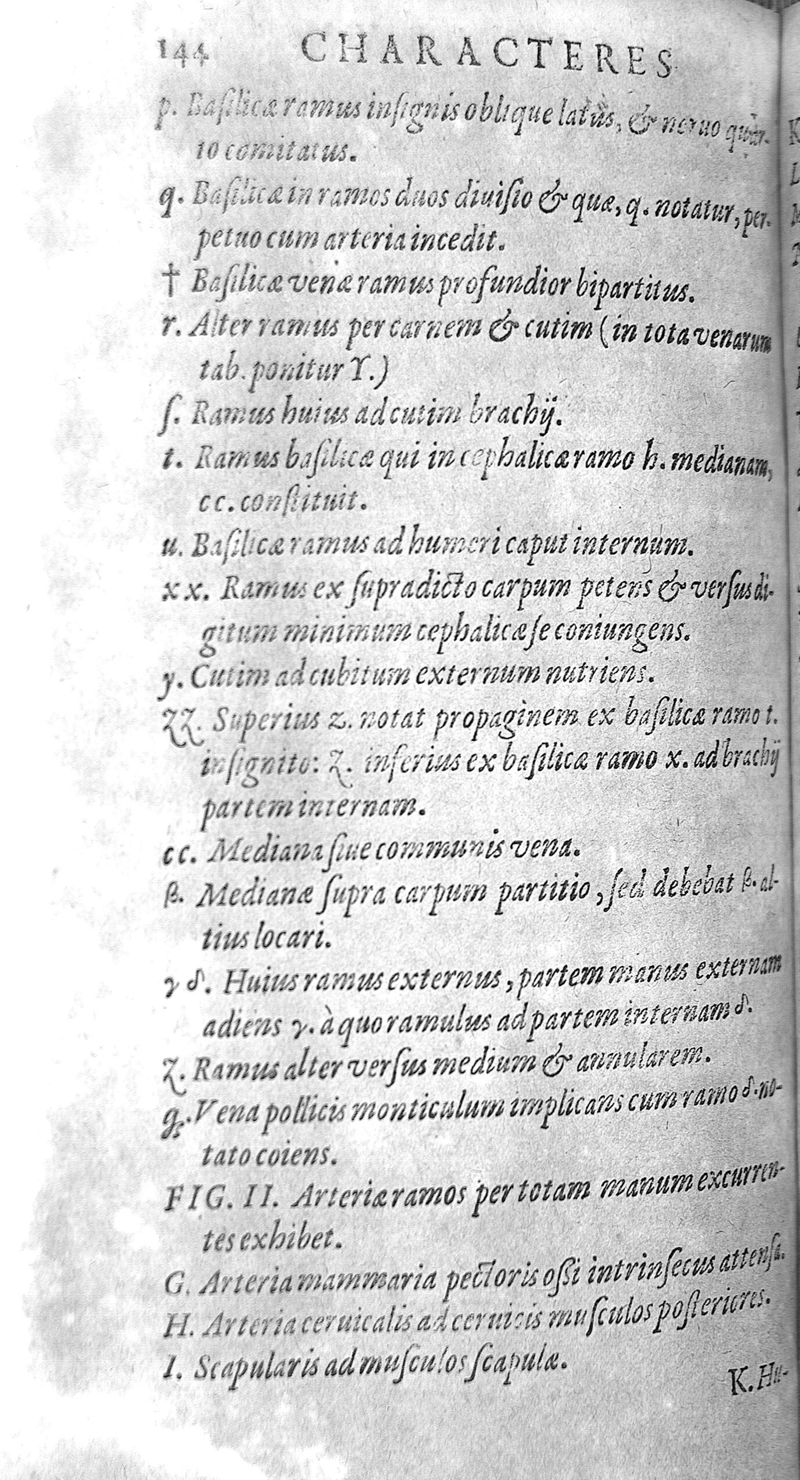 144 CHARACTERES
p. Baſilicæ ramus inſignis oblique latus, & neruo quar-
to comitatus.
q. Baſilicæ in ramos duos diuiſio & quæ, q. notatur, per-
petuo cum arteria incedit.
† Baſilicæ venæ ramus profundior bipartitus.
r. Alter ramus per carnem & cutim (in tota venarum
tab. ponitur Υ.)
ſ. Ramus huius ad cutim brachij.
t. Ramus baſilicæ qui in cephalicæ ramo h. medianam,
cc. conſtituit.
u. Baſilicæ ramus ad humeri caput internum.
xx. Ramus ex ſupradicto carpum petens & verſus di-
gitum minimum cephalicæ ſe coniungens.
y. Cutim ad cubitum externum nutriens.
zz. Superius z. notat propaginem ex baſilicæ ramo t.
inſignito: z. inferius ex baſilicæ ramo x. ad brachij
partem internam.
cc. Mediana ſiue communis vena.
β. Medianæ ſupra carpum partitio, ſed debebat β. al-
tius locari.
γ δ. Huius ramus externus, partem manus externam
adiens γ. à quo ramulus ad partem internam δ.
z. Ramus alter verſus medium & annularem.
Vena pollicis monticulum implicans cum ramo δ. no-
tato coiens.
FIG. II. Arteriæ ramos per totam manum excurren-
tes exhibet.
G. Arteria mammaria pectoris oſſi intrinſecus attenſa.
H. Arteria ceruicalis ad ceruicis muſculos poſteriores.
I. Scapularis ad muſculos ſcapulæ.
K. Hu-